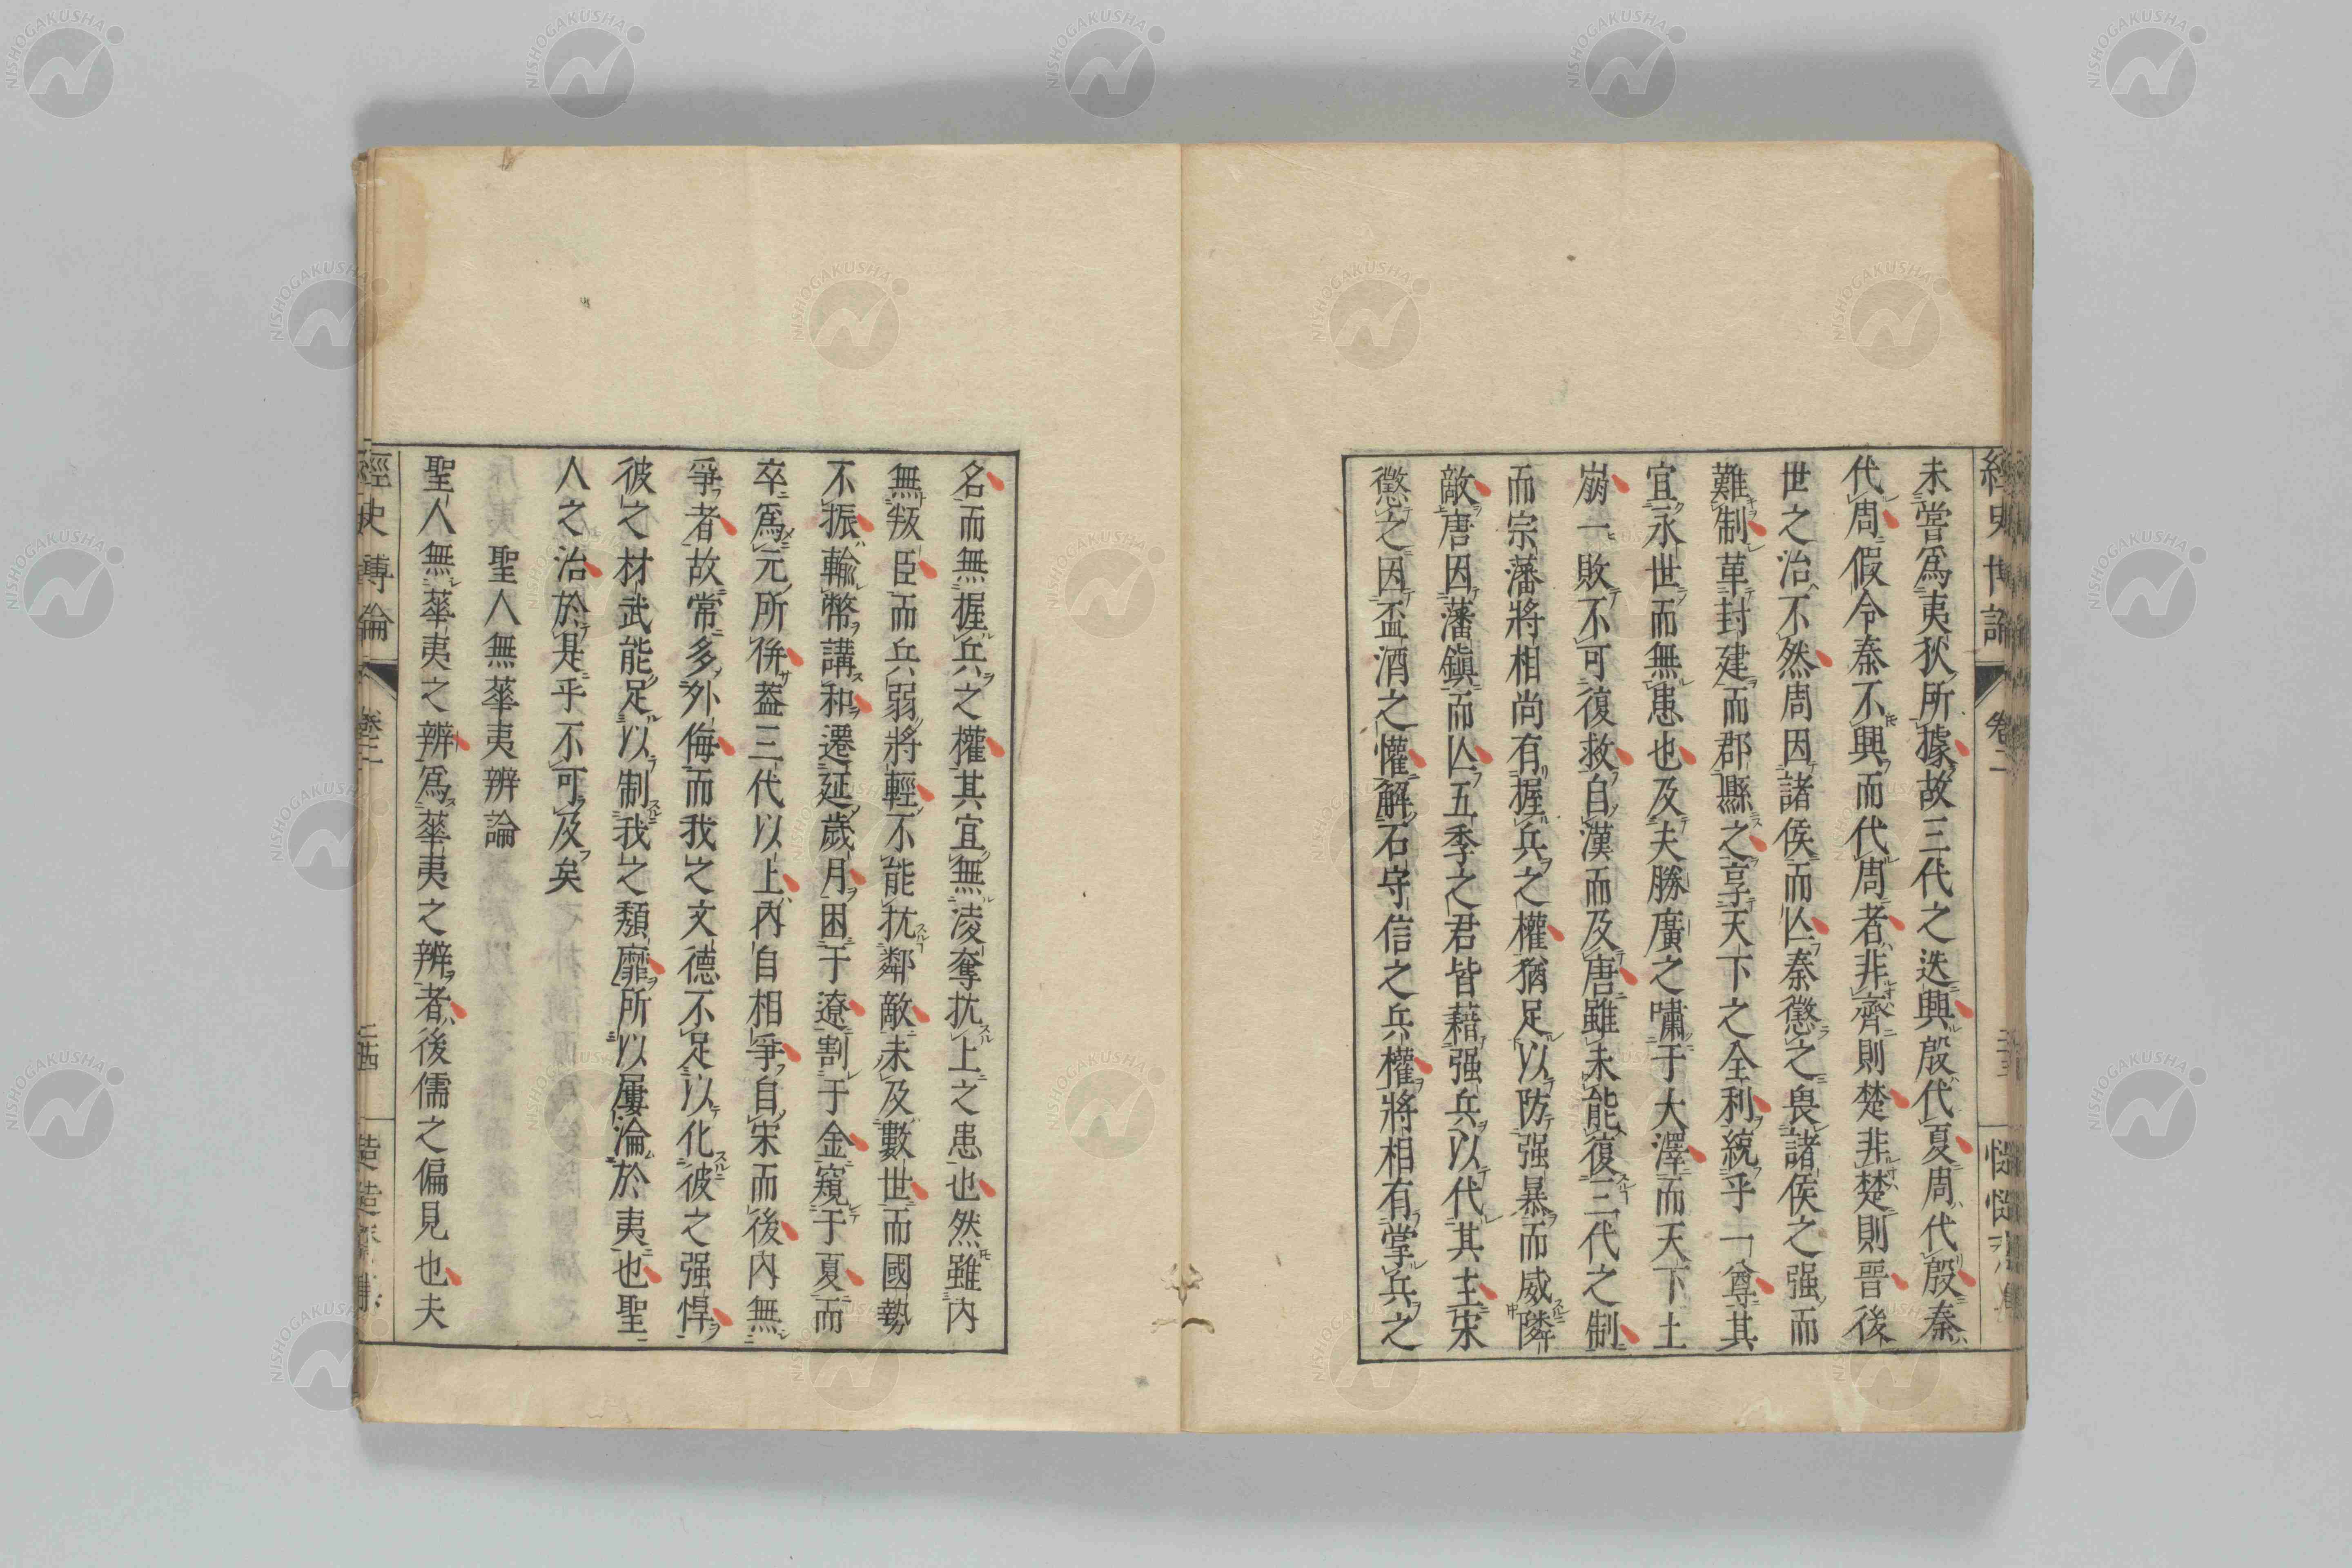 未嘗爲夷狄所據故三代之迭興殷代夏周代殷秦
代周假令秦不興而代周者非齊則楚非楚則晉後
世之治不然周因諸侯而亾秦懲之畏諸侯之强而
難制革封建而郡縣之享天下之全利統乎一尊其
宜永世而無患也及夫勝廣之嘯于大澤而天下土
崩一敗不可復救自漢而及唐雖未能復三代之制
而宗藩將相尚有握兵之權猶足以防强暴而威隣
敵唐因藩鎭而亾五季之君皆藉强兵以代其主宋
懲之因盃酒之懽解石守信之兵權將相有掌兵之
名而無握兵之權其宜無凌奪抗上之患也然雖内
無叛臣而兵弱將輕不能抗鄰敵未及數世而國勢
不振輸幣講和遷延歲月困于遼割于金窺于夏而
卒爲元所併蓋三代以上内自相爭自宋而後内無
爭者故常多外侮而我之文德不足以化彼之强悍
彼之材武能足以制我之頽靡所以屢淪於夷也聖
人之治於是乎不可及矣
聖人無華夷辨論
聖人無華夷之辨爲華夷之辨者後儒之偏見也夫
經史博論
卷二
NISHOGAKUSHA